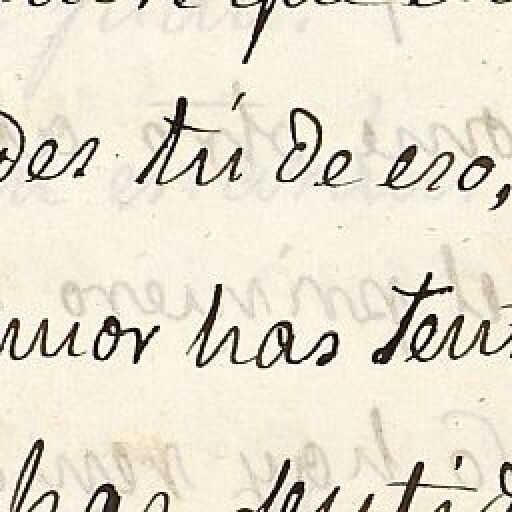 que
des tú de eso,
mor has ten
has sentid